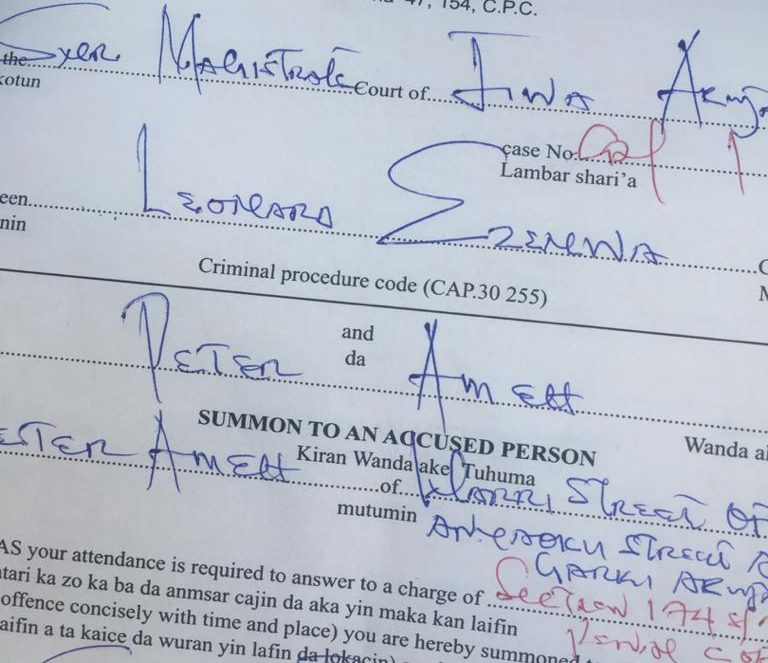 47, 154, C.P.C.
the Magistrate Court of Jiwa Abuja
kotun
case No:
Lambar shari'a
een Leonard Ezenwa
nin
Criminal procedure code (CAP.30 255)
Peter and Ameh
da
SUMMON TO AN ACCUSED PERSON Wanda a
Kiran Wanda ake Tuhuma
ETER Ameh of Street Of
mutumin Street
Garki Abuja
AS your attendance is required to answer to a charge of Section 174
atari ka zo ka ba da anmsar cajin da aka yin maka kan laifin
offence concisely with time and place) you are hereby summoned Penal Co
aifin a ta kaice da wuran yin lafin da lokacin)